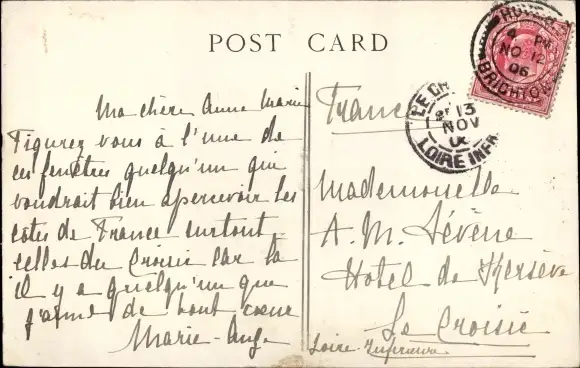 POST CARD
Ma chère Anne Marie
Figurez vous à l'une de
ces fenêtres quelqu'un que
voudrait bien apercevoir les
côtes de France surtout
celles du Croisic car la
il y a quelqu'un que
j'aime de tout cœur
Marie-Ange
France
Mademoiselle
A. M. Lévêne
Hôtel de
Le Croisic
Loire Inférieure
HOVE
4 PM
NO 12
06
BRIGHTON
LE CR
13
NOV
LOIRE INFRE